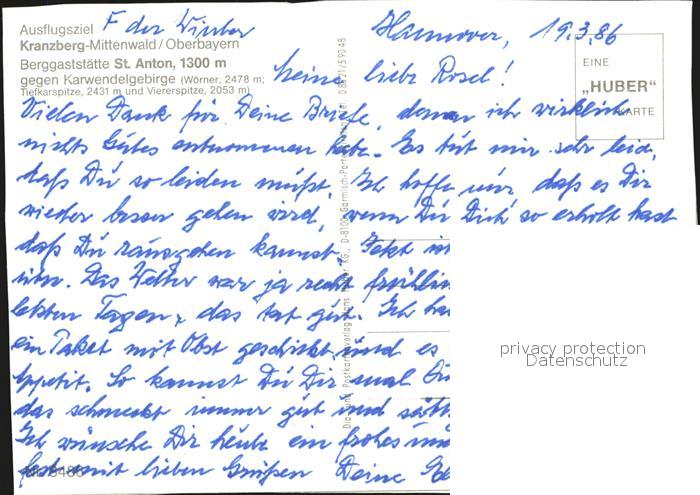 Ausflugsziel
Kranzberg-Mittenwald / Oberbayern
Berggaststätte St. Anton, 1300 m
gegen Karwendelgebirge (Wörner, 2478 m;
Tiefkarspitze, 2431 m und Viererspitze, 2053 m)
EINE
„HUBER"
KARTE
Hannover, 19.3.86
Meine liebe Rosel!
Vielen Dank für Deine Briefe, denen ich wirklich
nichts Gutes entnommen habe. Es tut mir sehr leid,
daß Du so leiden mußt. Ich hoffe nur, daß es Dir
wieder besser gehen wird, wenn Du Dich so erholt hast
daß Du rausgehen kannst. Jetzt is
Das Wetter war ja recht frühlin
letzten Tagen, das tat gut. Ich ha
ein Paket mit Obst geschickt, und es
Appetit. So kannst Du Dir mal
das schmeckt immer gut und
Ich wünsche Dir heute ein frohes
mit lieben Grüßen Deine
privacy protection
Datenschutz